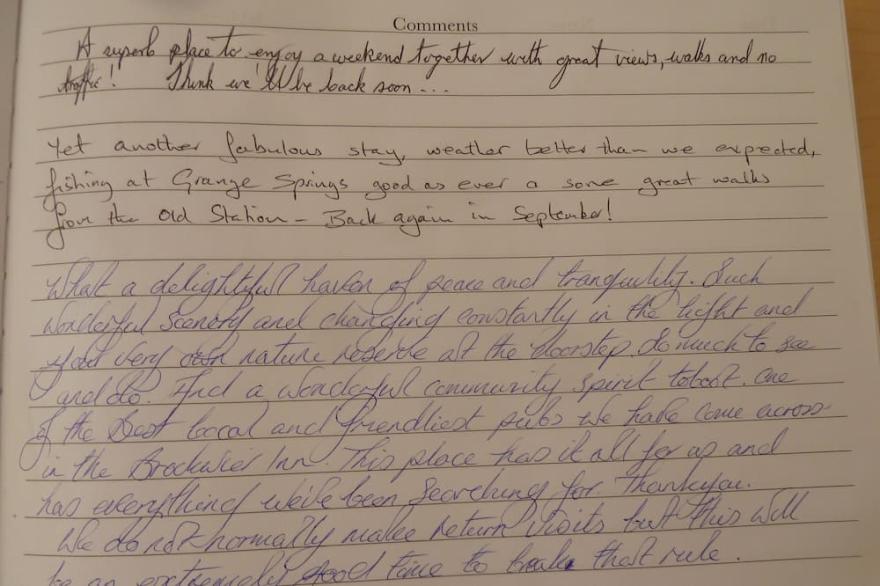 Comments
A superb place to enjoy a weekend together with great views, walks and no
traffic! Think we'll be back soon ...
Yet another fabulous stay, weather better than we expected,
fishing at Grange Springs good as ever a some great walks
from the Old Station - Back again in September!
What a delightful haven of peace and tranquility. Such
wonderful scenery and changing constantly in the light and
your very own nature reserve at the doorstep. So much to see
and do. And a wonderful community spirit to boot. One
of the best local and friendliest pubs we have come across
in the Brockweir Inn. This place has it all for us and
has everything we've been searching for. Thankyou.
We do not normally make return visits but this will
be an extremely good time to break that rule.